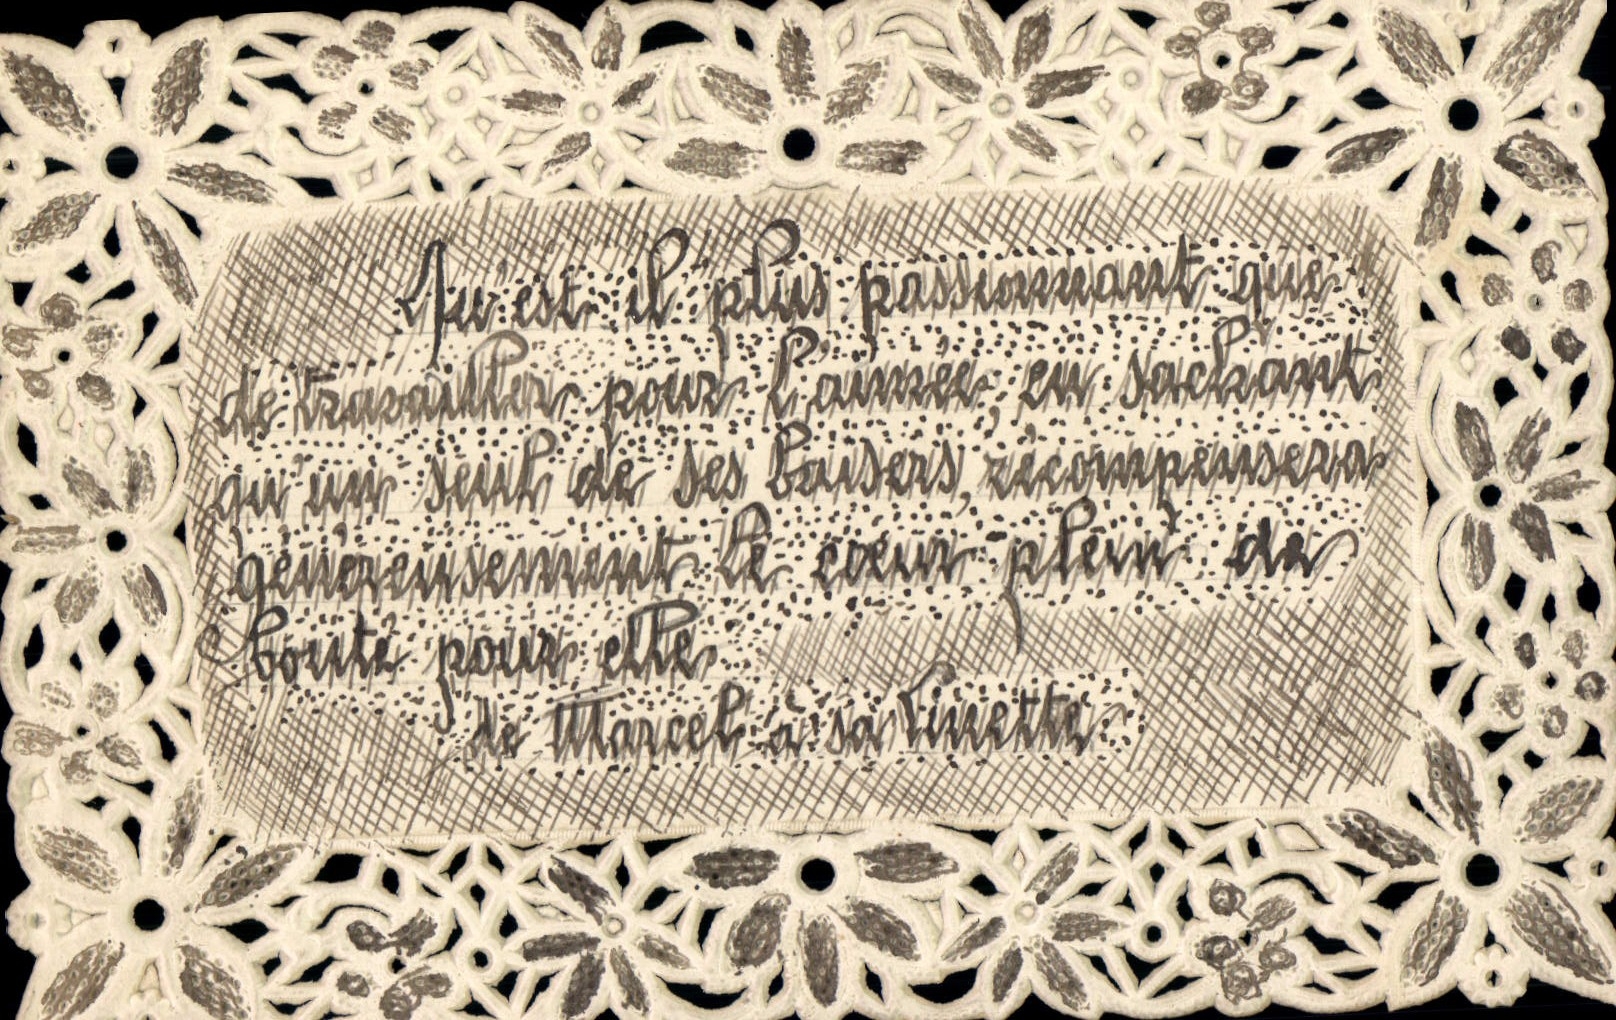 Qu'est il plus passionnant que
de travailler pour l'aimée, en sachant
qu'un seul de ses baisers, récompensera
généreusement le cœur plein de
bonté pour elle
de Marcel à sa Linette